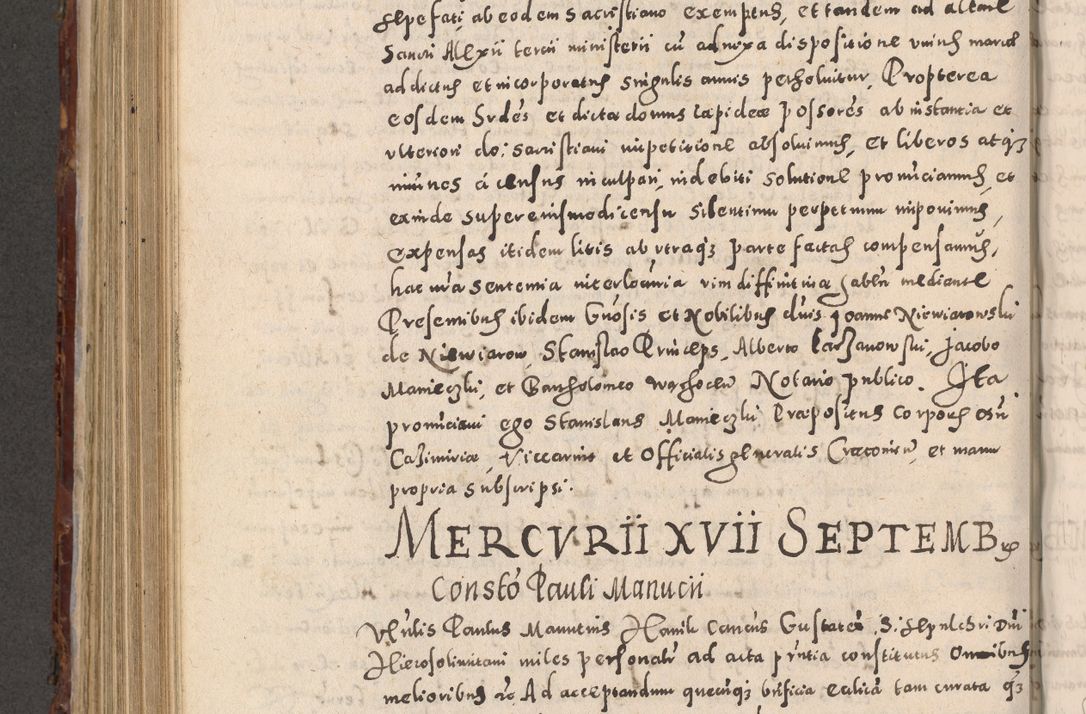 sepefati, ab eodem sacristiano exemptus, et tandem ad altare
Sancti Alexii tercii ministerii cũ adnixa dispositione unius marcæ
addictus et incorporatus singulis annis persolvitur, Propterea
eosdem Frdes et dicta domus lapideæ possores ab instantia et
ulteriori do: sacristiani impetitione absolvimus, et liberos atq3
immunes á census inculpari, indebiti solutione pronũciamus, et
exinde super eiusmodi censu silentium perpetuum imponimus,
expensas itidem litis ab utraq3 parte factas compensamus,
hac nra sententia interlocutoria vim diffinitivæ habẽn mediante
Presentibus ibidem Gnosis et Nobilibus dnis Joanne Niewiarowski
de Niewiarow, Stanislao Princeps, Alberto Karzanowski, Jacobo
Maniecki, et Bartholomeo Notario publico. Ita
pronũciavi ego Stanislaus Maniecki Præpositus Corporis
Casimiriæ, Viccarius et Officialis generalis Cracovieñ, et manu
propria subscripsi.
MERCVRII XVII SEPTEMB
Constó Pauli Manucii
Vnlis Paulus Manutius S. Sepulchri Dni
Hierosolimitani miles personalr ad acta pñtia constitutus Omnibus
melioribus rc Ad acceptandum quecuq3 bnficia ecclicã tam curata q3